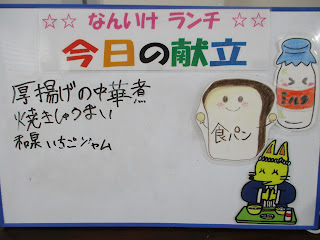 ☆☆ なんいけ ランチ ☆☆
今日の献立
厚揚げの中華煮
焼きしゅうまい
和泉いちごジャム
食パン
ミルク